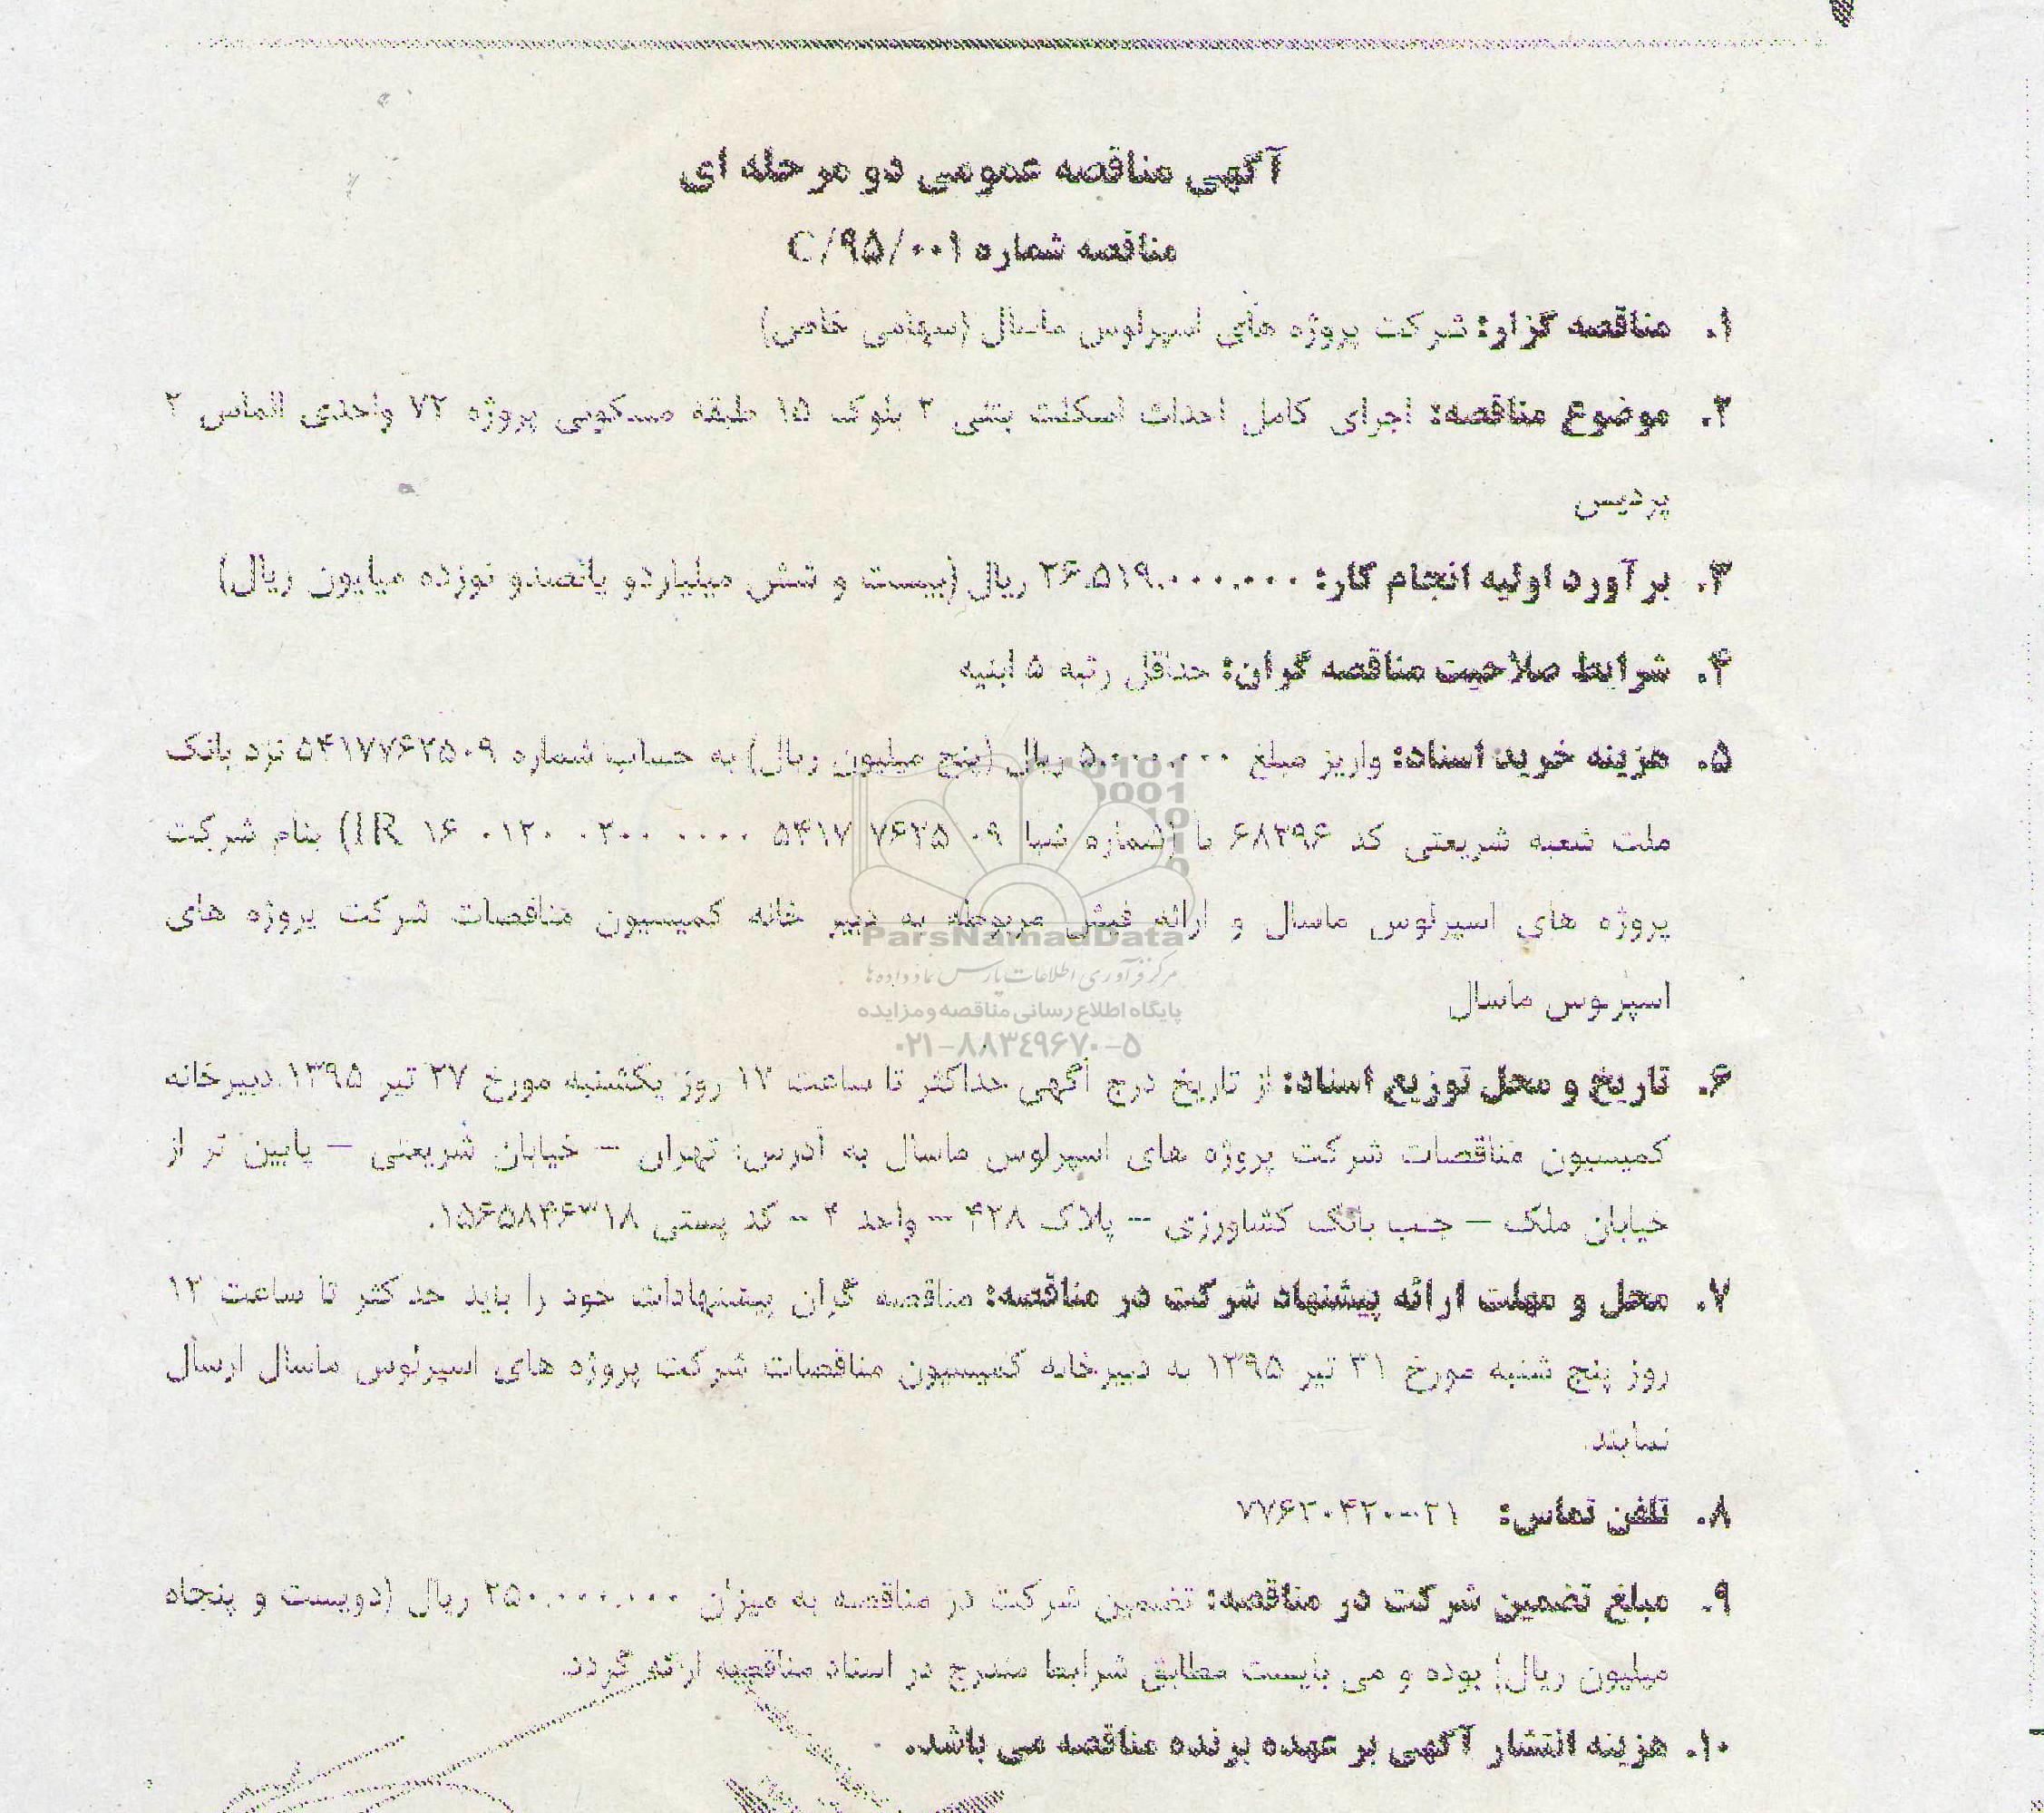 آگهی مناقصه عمومی دو مرحله ای
مناقصه شماره C/۹۵/۰۰۱
۱. مناقصه گزار: شرکت پروژه های اسپرلوس ماسال (سهامی خاص)
۲. موضوع مناقصه: اجرای کامل احداث اسکلت بتنی ۲ بلوک ۱۵ طبقه مسکونی پروژه ۷۲ واحدی الماس ۲
پردیس
۳. برآورد اولیه انجام کار: ۲۶.۵۱۹.۰۰۰.۰۰۰ ریال (بیست و شش میلیاردو پانصدو نوزده میلیون ریال)
۴. شرایط صلاحیت مناقصه گران: حداقل رتبه ۵ ابنیه
۵. هزینه خرید اسناد: واریز مبلغ ۵.۰۰۰.۰۰۰ ریال (پنج میلیون ریال) به حساب شماره ۵۴۱۷۷۶۲۵۰۹ نزد بانک
ملت شعبه شریعتی کد ۶۸۳۹۶ با (شماره شبا IR ۱۶ ۰۱۲۰ ۰۲۰۰ ۰۰۰۰ ۵۴۱۷ ۷۶۲۵ ۰۹) بنام شرکت
پروژه های اسپرلوس ماسال و ارائه فیش مربوطه به دبیر خانه کمیسیون مناقصات شرکت پروژه های
اسپرلوس ماسال
ParsNamadData
مرکز فرآوری اطلاعات پارس نماد داده ها
پایگاه اطلاع رسانی مناقصه و مزایده
۰۲۱-۸۸۳۴۹۶۷۰-۵
۶. تاریخ و محل توزیع اسناد: از تاریخ درج آگهی حداکثر تا ساعت ۱۷ روز یکشنبه مورخ ۲۷ تیر ۱۳۹۵ دبیرخانه
کمیسیون مناقصات شرکت پروژه های اسپرلوس ماسال به آدرس: تهران – خیابان شریعتی – پایین تر از
خیابان ملک – جنب بانک کشاورزی – پلاک ۴۲۸ – واحد ۴ – کد پستی ۱۵۶۵۸۴۶۳۱۸.
۷. محل و مهلت ارائه پیشنهاد شرکت در مناقصه: مناقصه گران پیشنهادات خود را باید حداکثر تا ساعت ۱۳
روز پنج شنبه مورخ ۳۱ تیر ۱۳۹۵ به دبیرخانه کمیسیون مناقصات شرکت پروژه های اسپرلوس ماسال ارسال
نمایند.
۸. تلفن تماس: ۰۲۱-۷۷۶۲۰۴۲۰
۹. مبلغ تضمین شرکت در مناقصه: تضمین شرکت در مناقصه به میزان ۲۵۰.۰۰۰.۰۰۰ ریال (دویست و پنجاه
میلیون ریال) بوده و می بایست مطابق شرایط مندرج در اسناد مناقصه ارائه گردد.
۱۰. هزینه انتشار آگهی بر عهده برنده مناقصه می باشد.